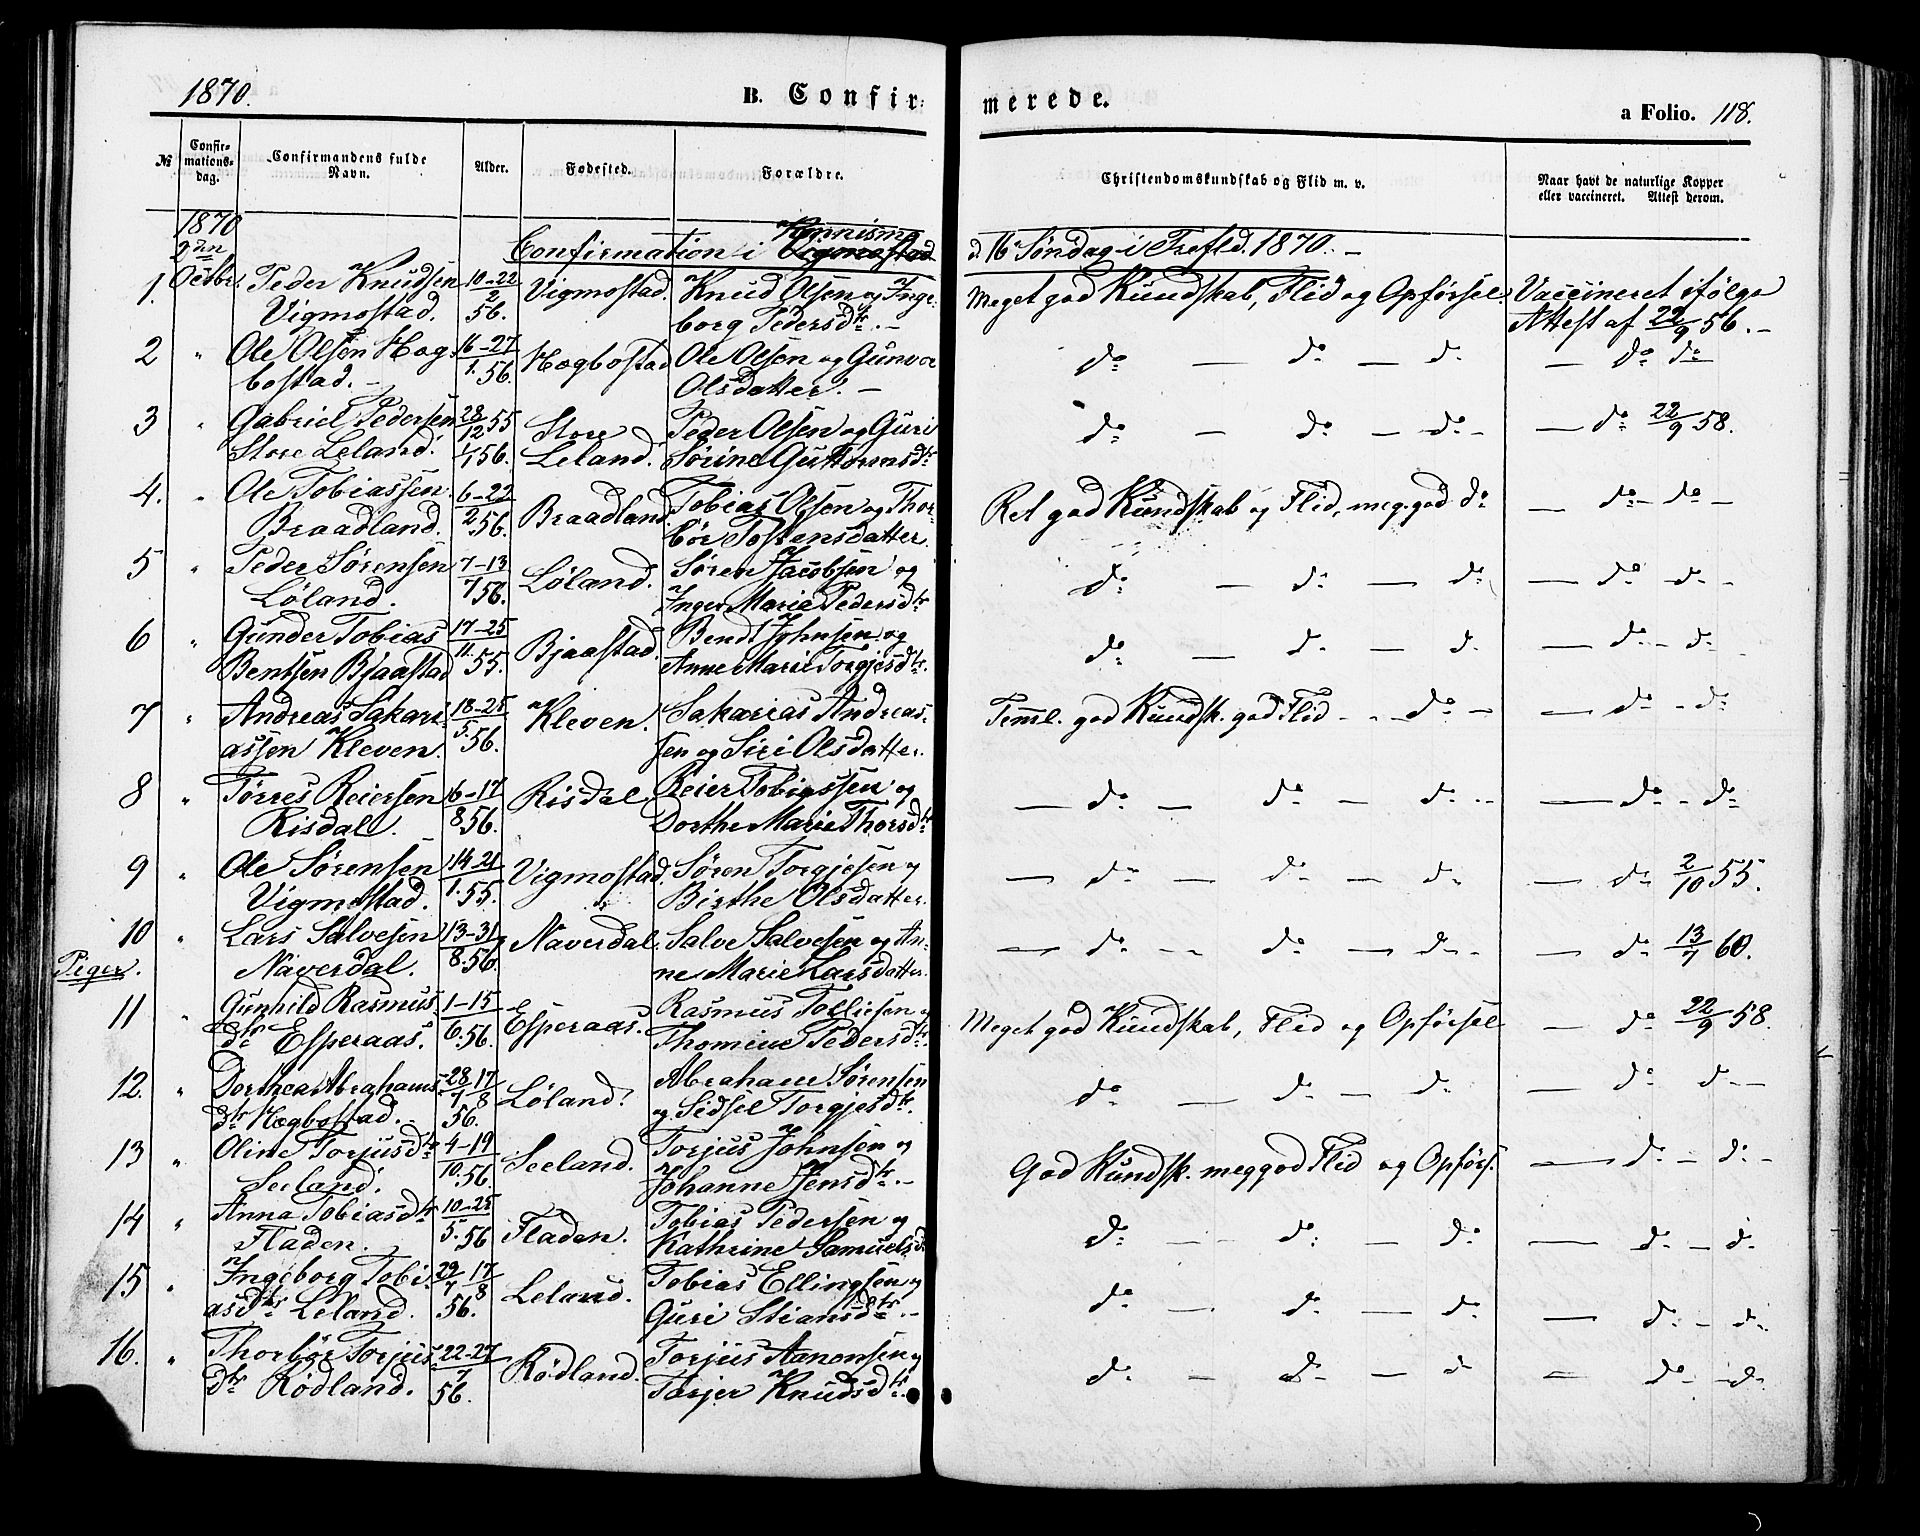 1870.
B. Confir-
merede.
a Folio. 118.
№
Confir-
mations-
dag.
Confirmandens fulde
Navn.
Alder.
Fødested.
Forældre.
Christendomskundskab og Flid m. v.
Naar havt de naturlige Kopper
eller vaccineret. Attest derom.
1870
2den
Octbr.
Confirmation i Vigmostad d. 16 Søndag i Trefld. 1870. –
1. Peder Knudsen 10–22/2 Vigmostad. Knud Olsen og Inge- Meget god Kundskab, Flid og Opførsel. Vaccineret ifølge
Vigmostad. 56. borg Pedersdtr. – Attest af 22/9 56. –
2 " Ole Olsen Høg- 16–27/1. 56. Høgbostad Ole Olsen og Gunvor do – do – do – do do
bostad. – Olsdatter. –
3 " Gabriel Pedersen 28/12 55 Store Peder Olsen og Guri do – do – do – – do 22/9 58.
Store Leland. 1/1 56. Leland. Sørine Guttormsdtr
4. " Ole Tobiassen 6–22/2 56. Braadland. Tobias Olsen og Thor- Ret god Kundskab og Flid, meg. god do – do – do –
Braadland. bør Tostensdatter.
5 " Peder Sørensen 7–13/7 56. Løland. Søren Jacobsen og do – do – do – do – do –
Løland. Inger Marie Pedersdtr
6 " Gunder Tobias 17–25/11. 55. Bjaastad. Bendt Johnsen og do – do – do – do – do
Bentsen Bjaastad Anne Marie Torgjersdtr.
7 " Andreas Sakari- 18–25/5. 56. Kleven. Sakarias Andreas- Teml. god Kundsk. god Flid – – do – – do – do
assen Kleven. sen og Siri Olsdatter.
8 " Tørres Reiersen 6–17/8 56. Risdal Reier Tobiassen og – do – do – do – – do – do
Risdal. Dorthe Marie Thorsdtr
9 " Ole Sørensen 14–21/1. 55. Vigmostad. Søren Torgjesen og – do – do – do – do 2/10 55.
Vigmostad. Birthe Olsdatter.
10 " Lars Salvesen 13–31/8. 56. Naverdal. Salve Salvesen og An- – do – – do – do – – do 13/7 60.
Naverdal. ne Marie Larsdatter.
Piger.
11 " Gunhild Rasmus- 1–15/6. 56. Esperaas. Rasmus Tolliesen og Meget god Kundskab, Flid og Opførsel – do 22/9 58.
dtr Esperaas. Thomine Pedersdtr.
12. " Dorthea Abrahams- 28/7 17/8 Løland. Abraham Sørensen do – do – do – do do –
dtr Høgbostad. 56. og Sidsel Torgjesdtr.
13 " Oline Torjusdtr 4–19/10. 56. Seeland. Torjus Johnsen og God Kundsk. meg god Flid og Opførs. – do – do –
Seeland. Johanne Jensdtr. –
14 " Anna Tobiasdtr 10–25/5. 56 Fladen. Tobias Pedersen og do – – do – do – do – do
Fladen. Kathrine Samuelsdtr
15 " Ingeborg Tobi- 29/7 17/8 Leland. Tobias Ellingsen og do – do – do – do – do
asdtr Leland. 56. Guri Stiansdtr. –
16. " Thorbør Torjus- 22–27/7 Rødland. Torjus Aanonsen og do – do – do – do – do
dtr Rødland. 56. Tarjer Knudsdtr.